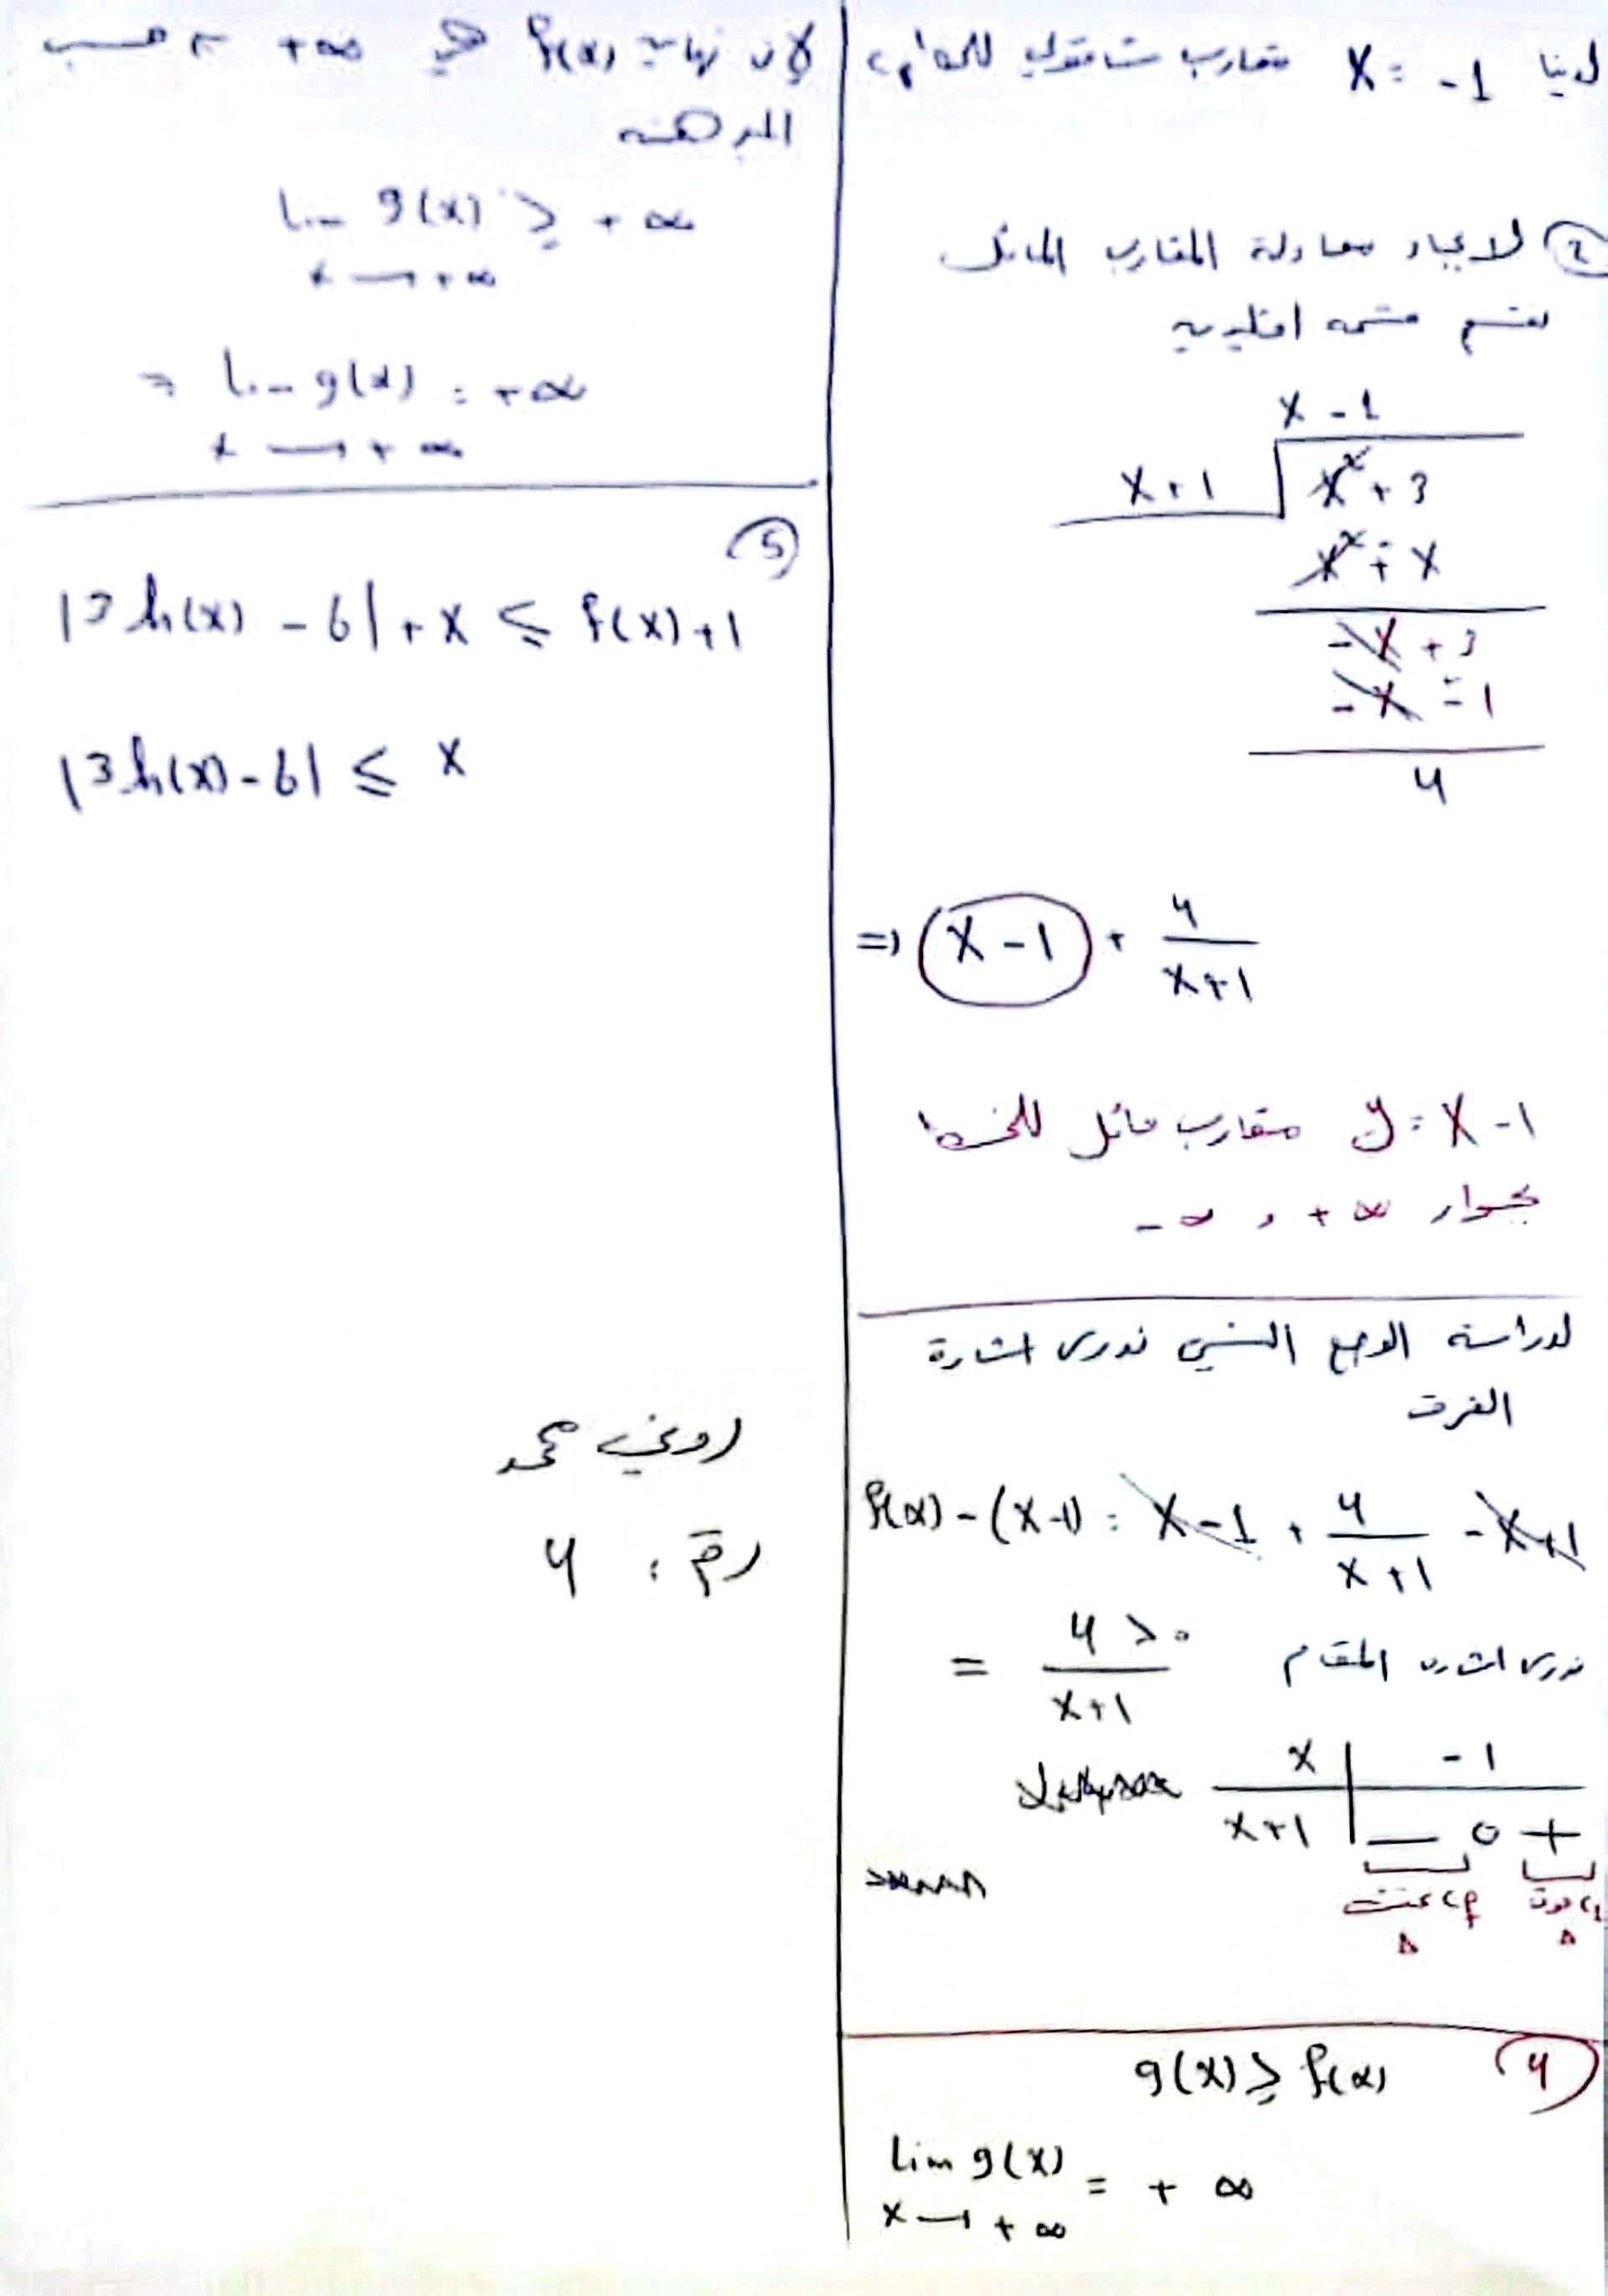 لدينا x = -1 مقارب شاقولي للخط
② لايجاد معادلة المقارب المائل
نقسم قسمة اقليدية
x - 1
x + 1 x² + 3
x² + x
-x + 3
-x - 1
4
=> x - 1 + 4/(x+1)
y = x - 1 مقارب مائل للخط
بجوار +∞ و -∞
لدراسة الوضع النسبي ندرس اشارة
الفرق
f(x) - (x-1) = x - 1 + 4/(x+1) - x + 1
= 4 > 0 / (x+1) ندرس اشارة المقام
x | -1
x+1 | — 0 +
فوق Δ تحت Δ
④ g(x) ≥ f(x)
lim g(x) = +∞
x → +∞
لان نهاية f(x) هي +∞ حسب
المبرهنة
lim g(x) ≥ +∞
x → +∞
=> lim g(x) = +∞
x → +∞
⑤
|3h(x) - 6| + x ≤ f(x) + 1
|3h(x) - 6| ≤ x
محمد
رقم : 4